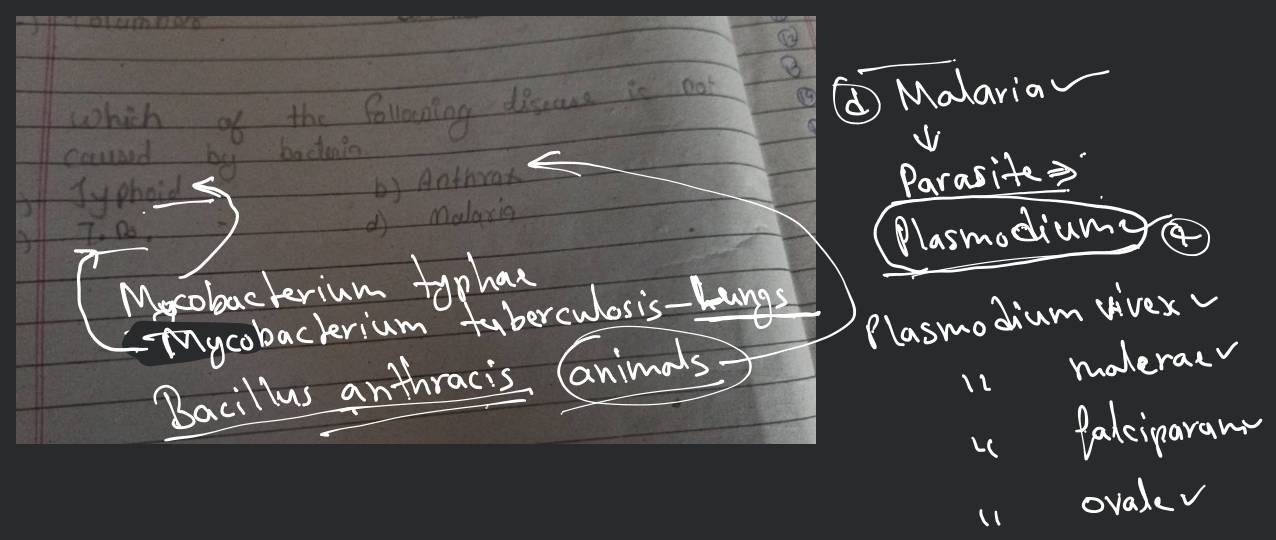 which of the following disease is not
caused by bacteria
Typhoid b) Anthrax
T.B. d) Malaria
Mycobacterium typhae
Mycobacterium tuberculosis - Lungs
Bacillus anthracis animals
(d) Malaria ✓
↓
Parasite ⇒
Plasmodium (4)
Plasmodium vivex ✓
" malerae ✓
" falciparam ✓
" ovale ✓